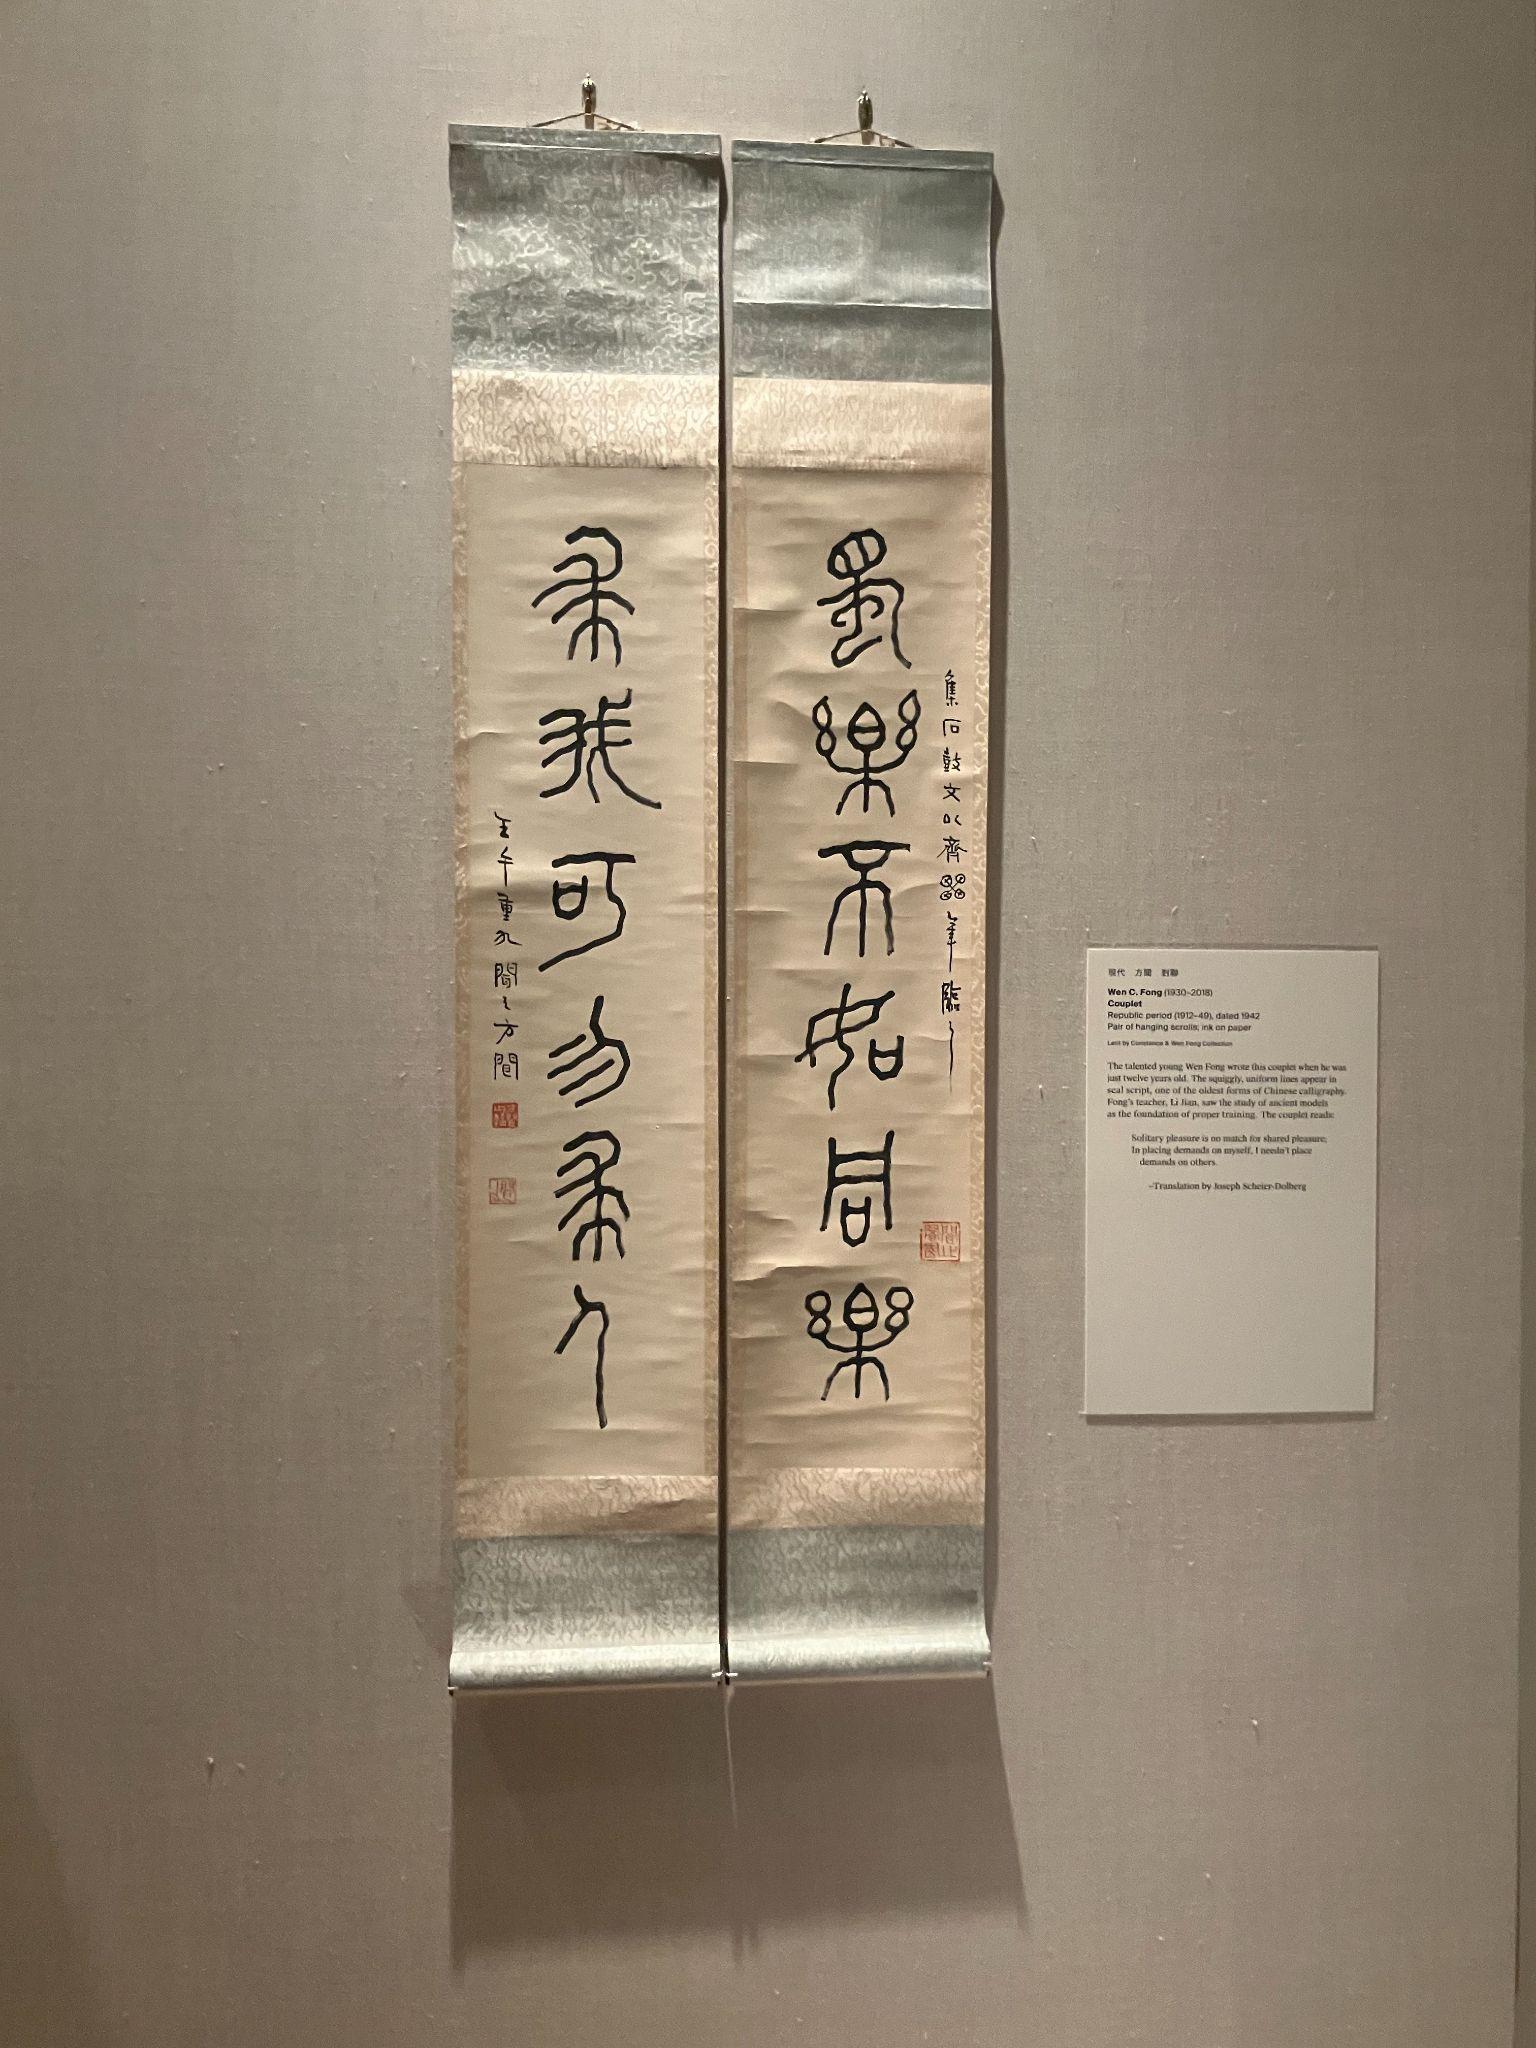 蜀樂不如同樂
集石鼓文以齊筆臨之
求我可勿求人
壬午重九聞之方聞
現代 方聞 對聯
Wen C. Fong (1930–2018)
Couplet
Republic period (1912–49), dated 1942
Pair of hanging scrolls; ink on paper
Lent by Constance & Wen Fong Collection
The talented young Wen Fong wrote this couplet when he was
just twelve years old. The squiggly, uniform lines appear in
seal script, one of the oldest forms of Chinese calligraphy.
Fong's teacher, Li Jian, saw the study of ancient models
as the foundation of proper training. The couplet reads:
Solitary pleasure is no match for shared pleasure;
In placing demands on myself, I needn't place
demands on others.
–Translation by Joseph Scheier-Dolberg